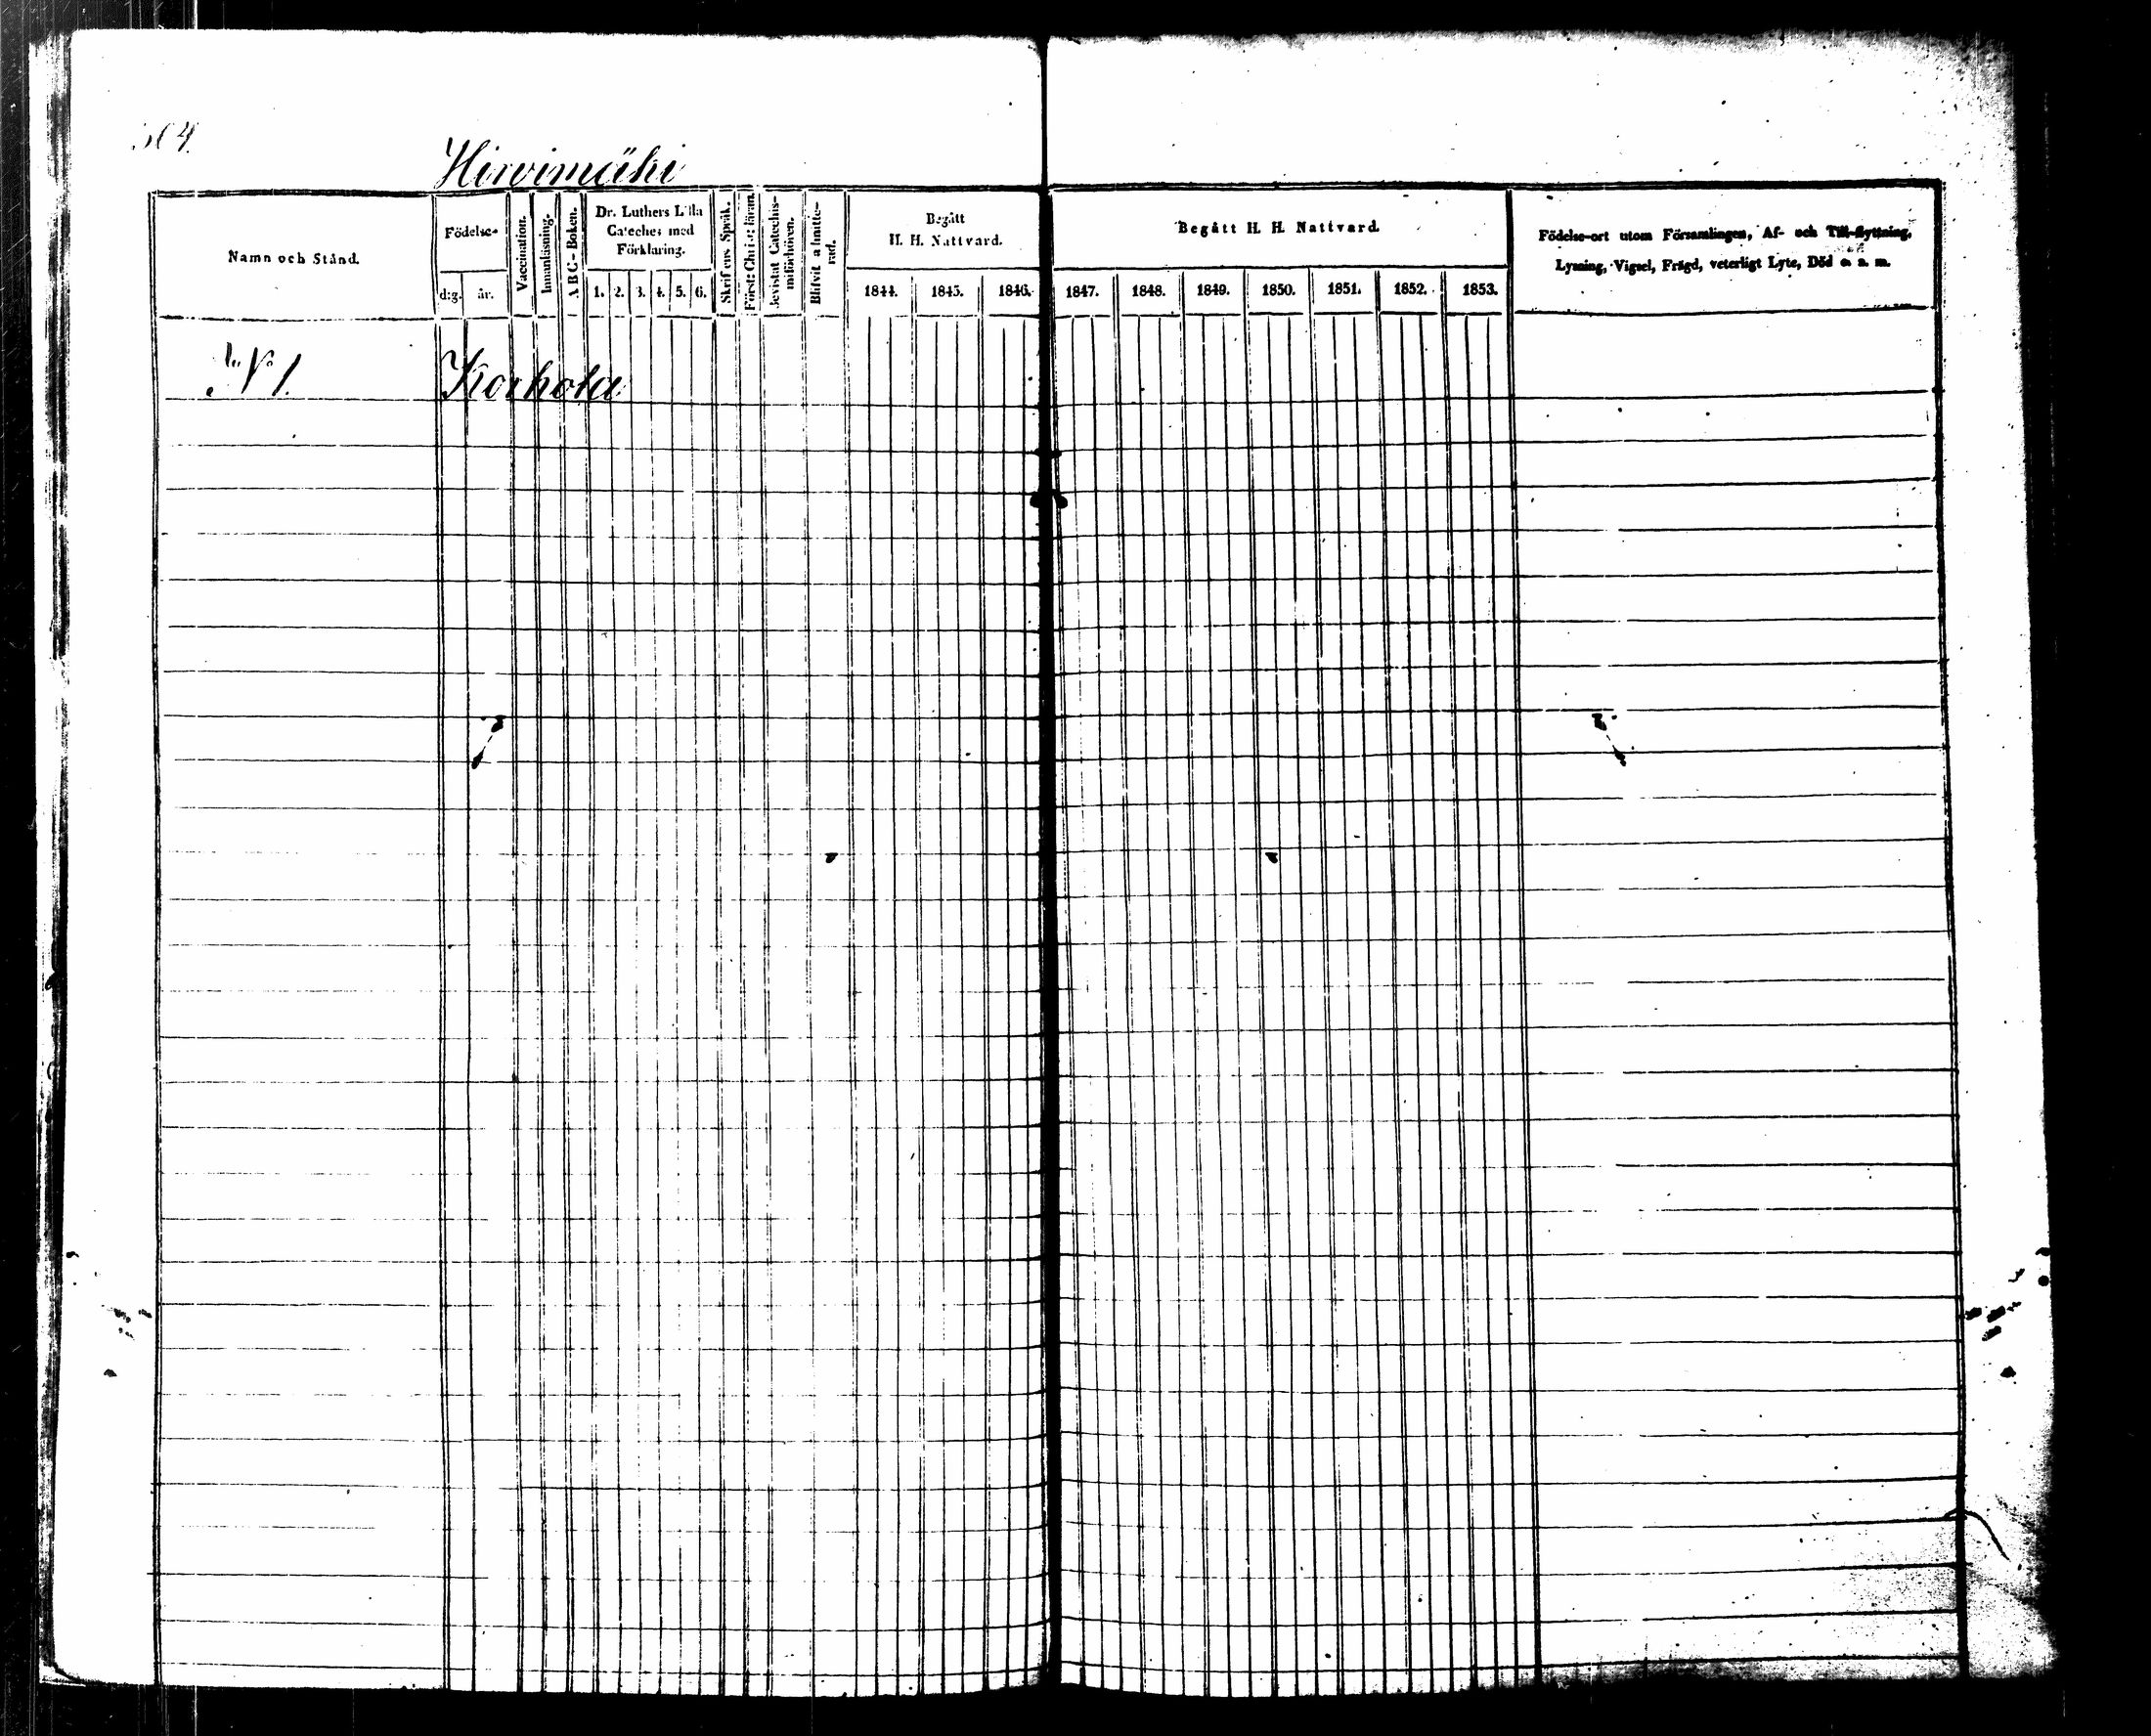 304.
Hirvimäki
Namn och Stånd.
Födelse-
d:g.
år.
Vaccination.
Innanläsning.
A B C-Boken.
Dr. Luthers Lilla
Cateches med
Förklaring.
1. 2. 3. 4. 5. 6.
Skriftens Språk.
Först: Christ: läran.
Bevistat Catechis-
miförhören.
Blifvit admitte-
rad.
Begått
H. H. Nattvard.
1844. 1845. 1846.
Begått H. H. Nattvard.
1847. 1848. 1849. 1850. 1851. 1852. 1853.
Födelse-ort utom Församlingen, Af- och Till-flyttning,
Lysning, Vigsel, Frägd, veterligt Lyte, Död o. s. m.
N° 1. Korhola